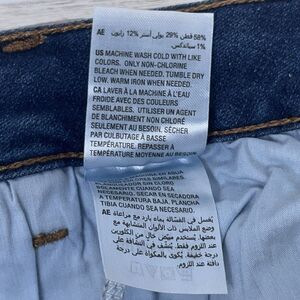 AE 58% قطن 29% بولي أستر 12% رايون
1% سباندكس
US MACHINE WASH COLD WITH LIKE
COLORS. ONLY NON-CHLORINE
BLEACH WHEN NEEDED. TUMBLE DRY
LOW. WARM IRON WHEN NEEDED.
CA LAVER À LA MACHINE À L'EAU
FROIDE AVEC DES COULEURS
SEMBLABLES. UTILISER UN AGENT
DE BLANCHIMENT NON CHLORÉ
SEULEMENT AU BESOIN. SÉCHER
PAR CULBUTAGE À BASSE
TEMPÉRATURE. REPASSER À
TEMPÉRATURE MOYENNE AU BESOIN.
EN AGUA
CUANDO SEA NECESARIO
A TEMPERATURA BAJA. PLANCHA
TIBIA CUANDO SEA NECESARIO.
AE يغسل في الغسالة بماء بارد مع مراعاة
غسل الملابس ذات الألوان المتشابهة مع
بعضها. يستخدم مبيض خال من الكلور
عند اللزوم فقط.
درجة حرارة خفيفة. يكوى بمكواة
دافئة عند اللزوم.